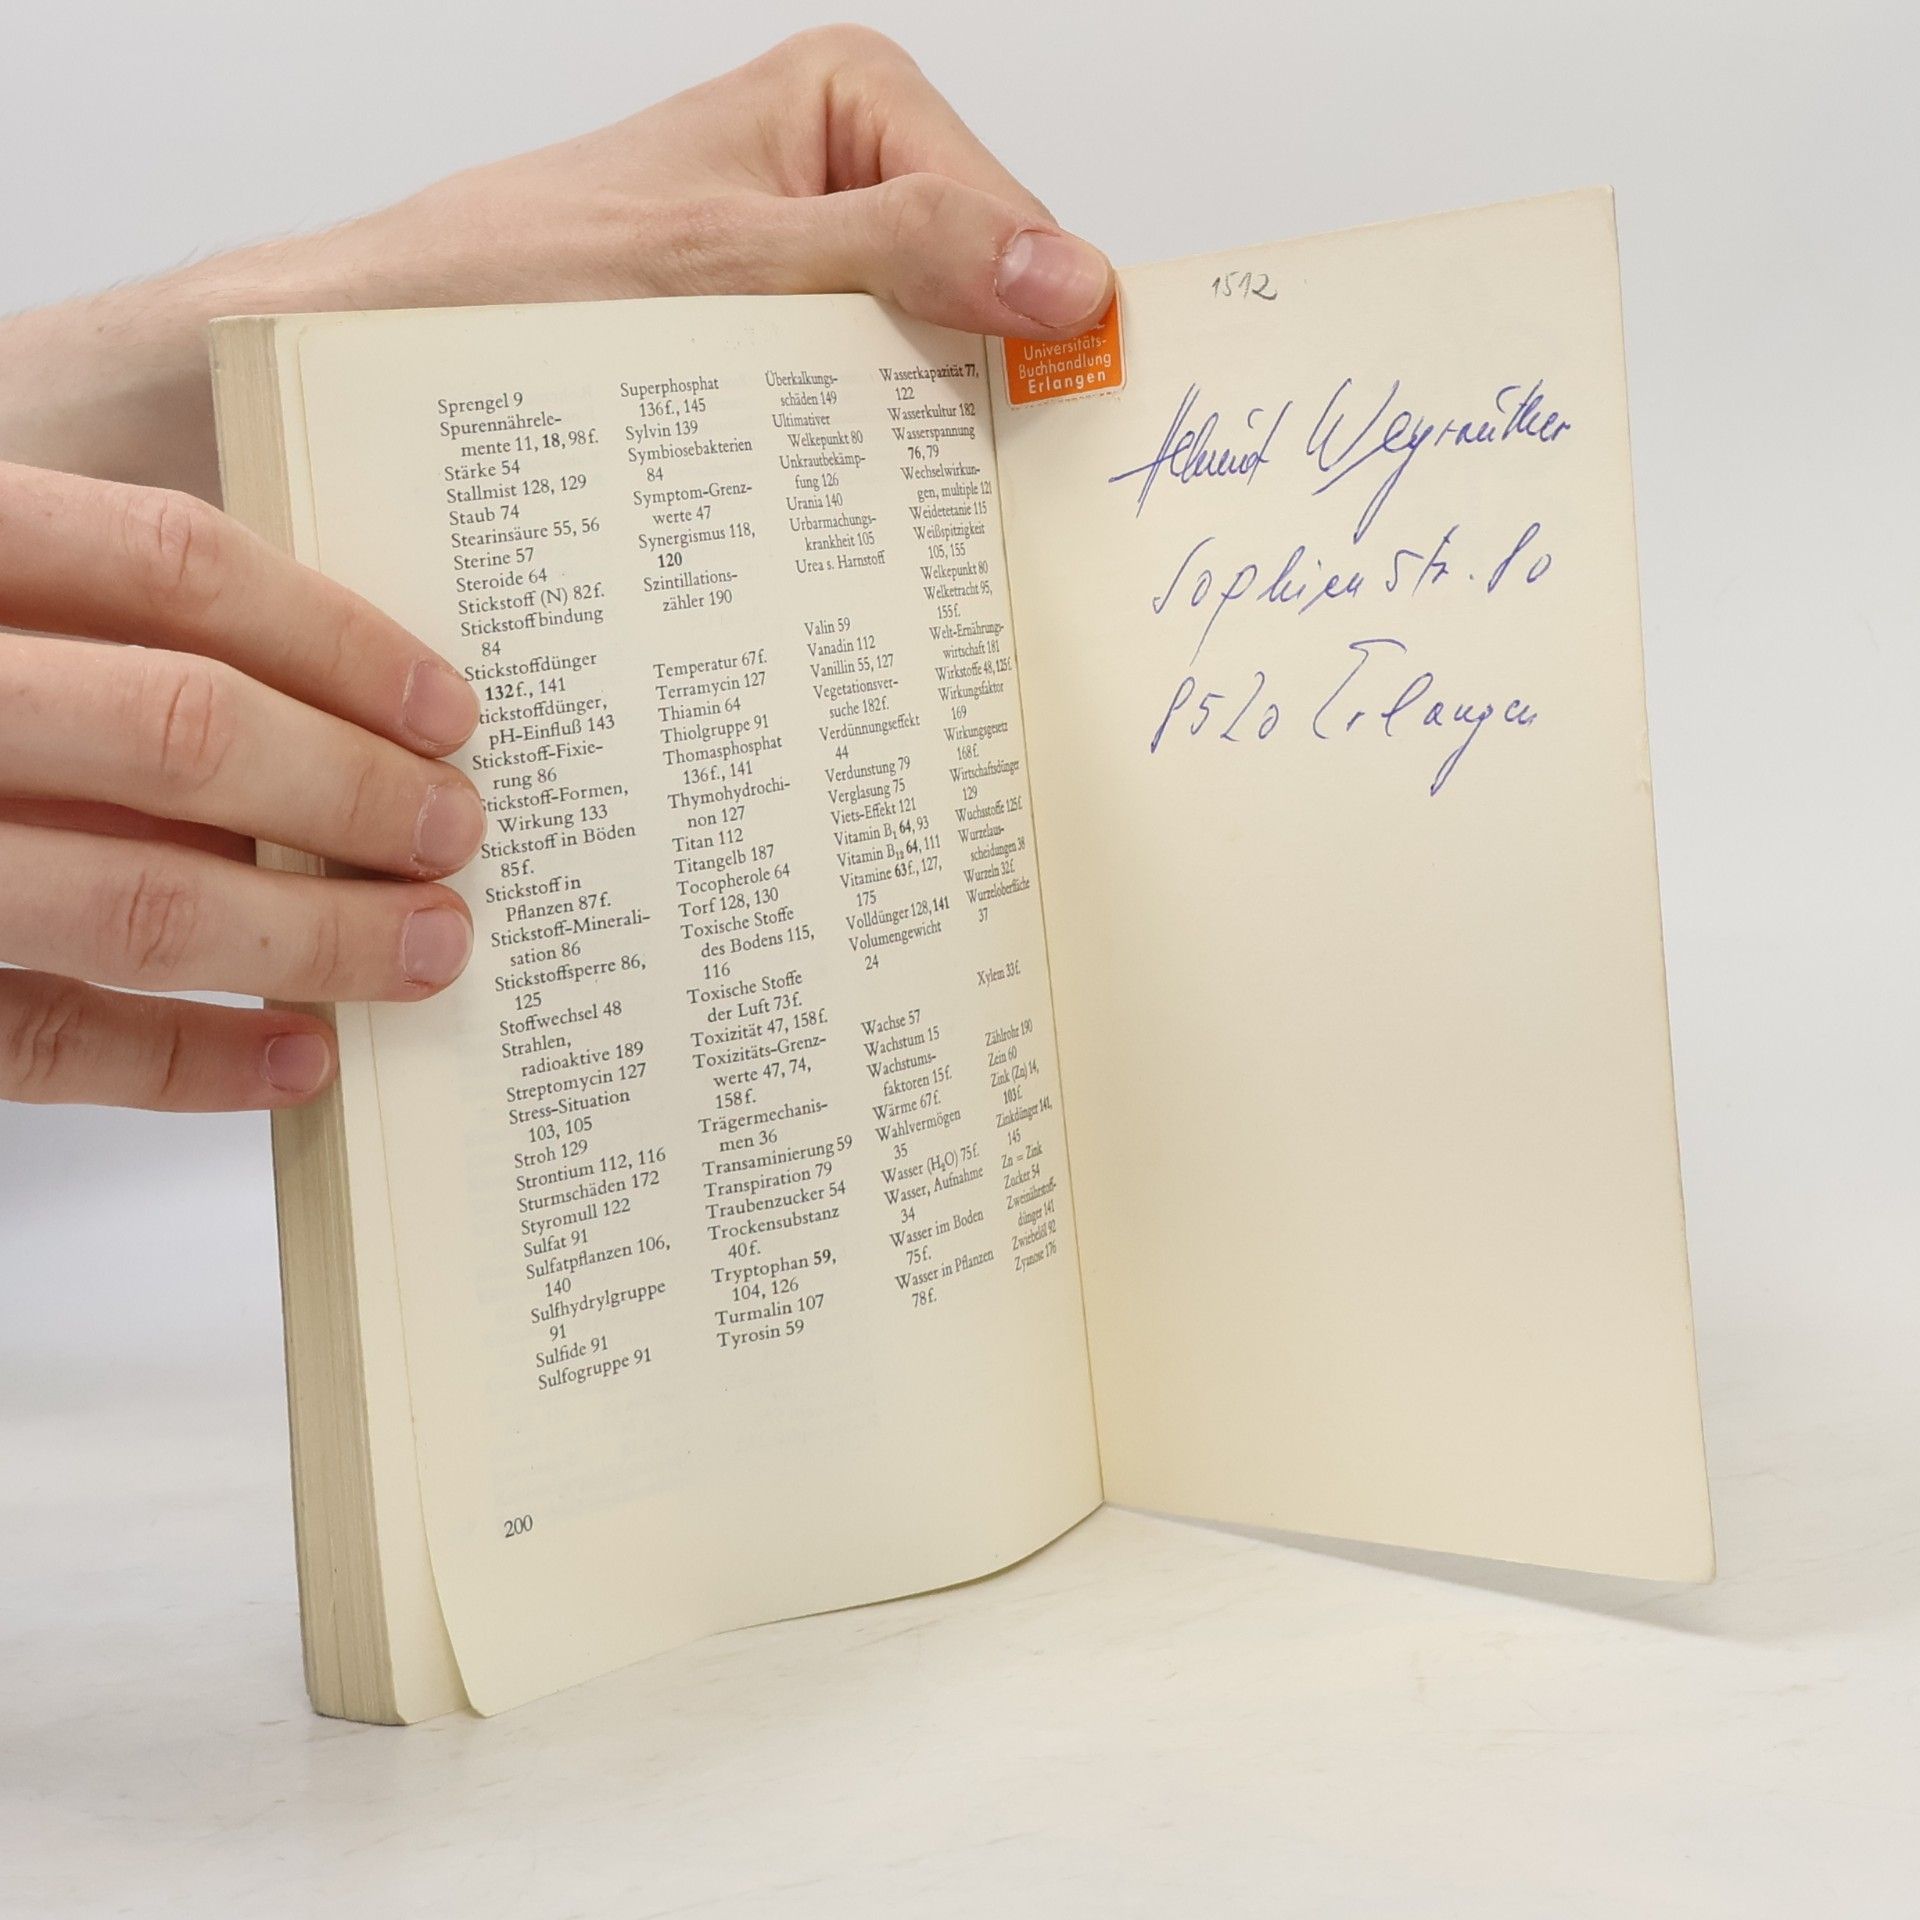 Sprengel 9
Spurennährele-
mente 11, 18, 98f.
Stärke 54
Stallmist 128, 129
Staub 74
Stearinsäure 55, 56
Sterine 57
Steroide 64
Stickstoff (N) 82f.
Stickstoffbindung
84
Stickstoffdünger
132f., 141
tickstoffdünger,
pH-Einfluß 143
Stickstoff-Fixie-
rung 86
Stickstoff-Formen,
Wirkung 133
Stickstoff in Böden
85f.
Stickstoff in
Pflanzen 87f.
Stickstoff-Minerali-
sation 86
Stickstoffsperre 86,
125
Stoffwechsel 48
Strahlen,
radioaktive 189
Streptomycin 127
Stress-Situation
103, 105
Stroh 129
Strontium 112, 116
Sturmschäden 172
Styromull 122
Sulfat 91
Sulfatpflanzen 106,
140
Sulfhydrylgruppe
91
Sulfide 91
Sulfogruppe 91
Superphosphat
136f., 145
Sylvin 139
Symbiosebakterien
84
Symptom-Grenz-
werte 47
Synergismus 118,
120
Szintillations-
zähler 190
Temperatur 67f.
Terramycin 127
Thiamin 64
Thiolgruppe 91
Thomasphosphat
136f., 141
Thymohydrochi-
non 127
Titan 112
Titangelb 187
Tocopherole 64
Torf 128, 130
Toxische Stoffe
des Bodens 115,
116
Toxische Stoffe
der Luft 73f.
Toxizität 47, 158f.
Toxizitäts-Grenz-
werte 47, 74,
158f.
Trägermechanis-
men 36
Transaminierung 59
Transpiration 79
Traubenzucker 54
Trockensubstanz
40f.
Tryptophan 59,
104, 126
Turmalin 107
Tyrosin 59
Überkalkungs-
schäden 149
Ultimativer
Welkepunkt 80
Unkrautbekämp-
fung 126
Urania 140
Urbarmachungs-
krankheit 105
Urea s. Harnstoff
Valin 59
Vanadin 112
Vanillin 55, 127
Vegetationsver-
suche 182f.
Verdünnungseffekt
44
Verdunstung 79
Verglasung 75
Viets-Effekt 121
Vitamin B₁ 64, 93
Vitamin B₁₂ 64, 111
Vitamine 63f., 127,
175
Volldünger 128, 141
Volumengewicht
24
Wachse 57
Wachstum 15
Wachstums-
faktoren 15f.
Wärme 67f.
Wahlvermögen
35
Wasser (H₂O) 75f.
Wasser, Aufnahme
34
Wasser im Boden
75f.
Wasser in Pflanzen
78f.
Wasserkapazität 77,
122
Wasserkultur 182
Wasserspannung
76, 79
Wechselwirkun-
gen, multiple 121
Weidetetanie 115
Weißspitzigkeit
105, 155
Welkepunkt 80
Welketracht 95,
155f.
Welt-Ernährungs-
wirtschaft 181
Wirkstoffe 48, 125f.
Wirkungsfaktor
169
Wirkungsgesetz
168f.
Wirtschaftsdünger
129
Wuchsstoffe 125f.
Wurzelaus-
scheidungen 38
Wurzeln 32f.
Wurzeloberfläche
37
Xylem 33f.
Zählrohr 190
Zein 60
Zink (Zn) 14,
103f.
Zinkdünger 141,
145
Zn = Zink
Zucker 54
Zweinährstoff-
dünger 141
Zwiebelöl 92
Zyanose 176
200
Universitäts-
Buchhandlung
Erlangen
1512
Helmut Weyrauther
Sophienstr. 80
8520 Erlangen